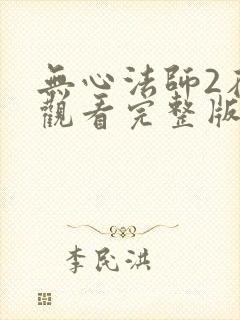 無心法師2
觀看完整版
李民洪